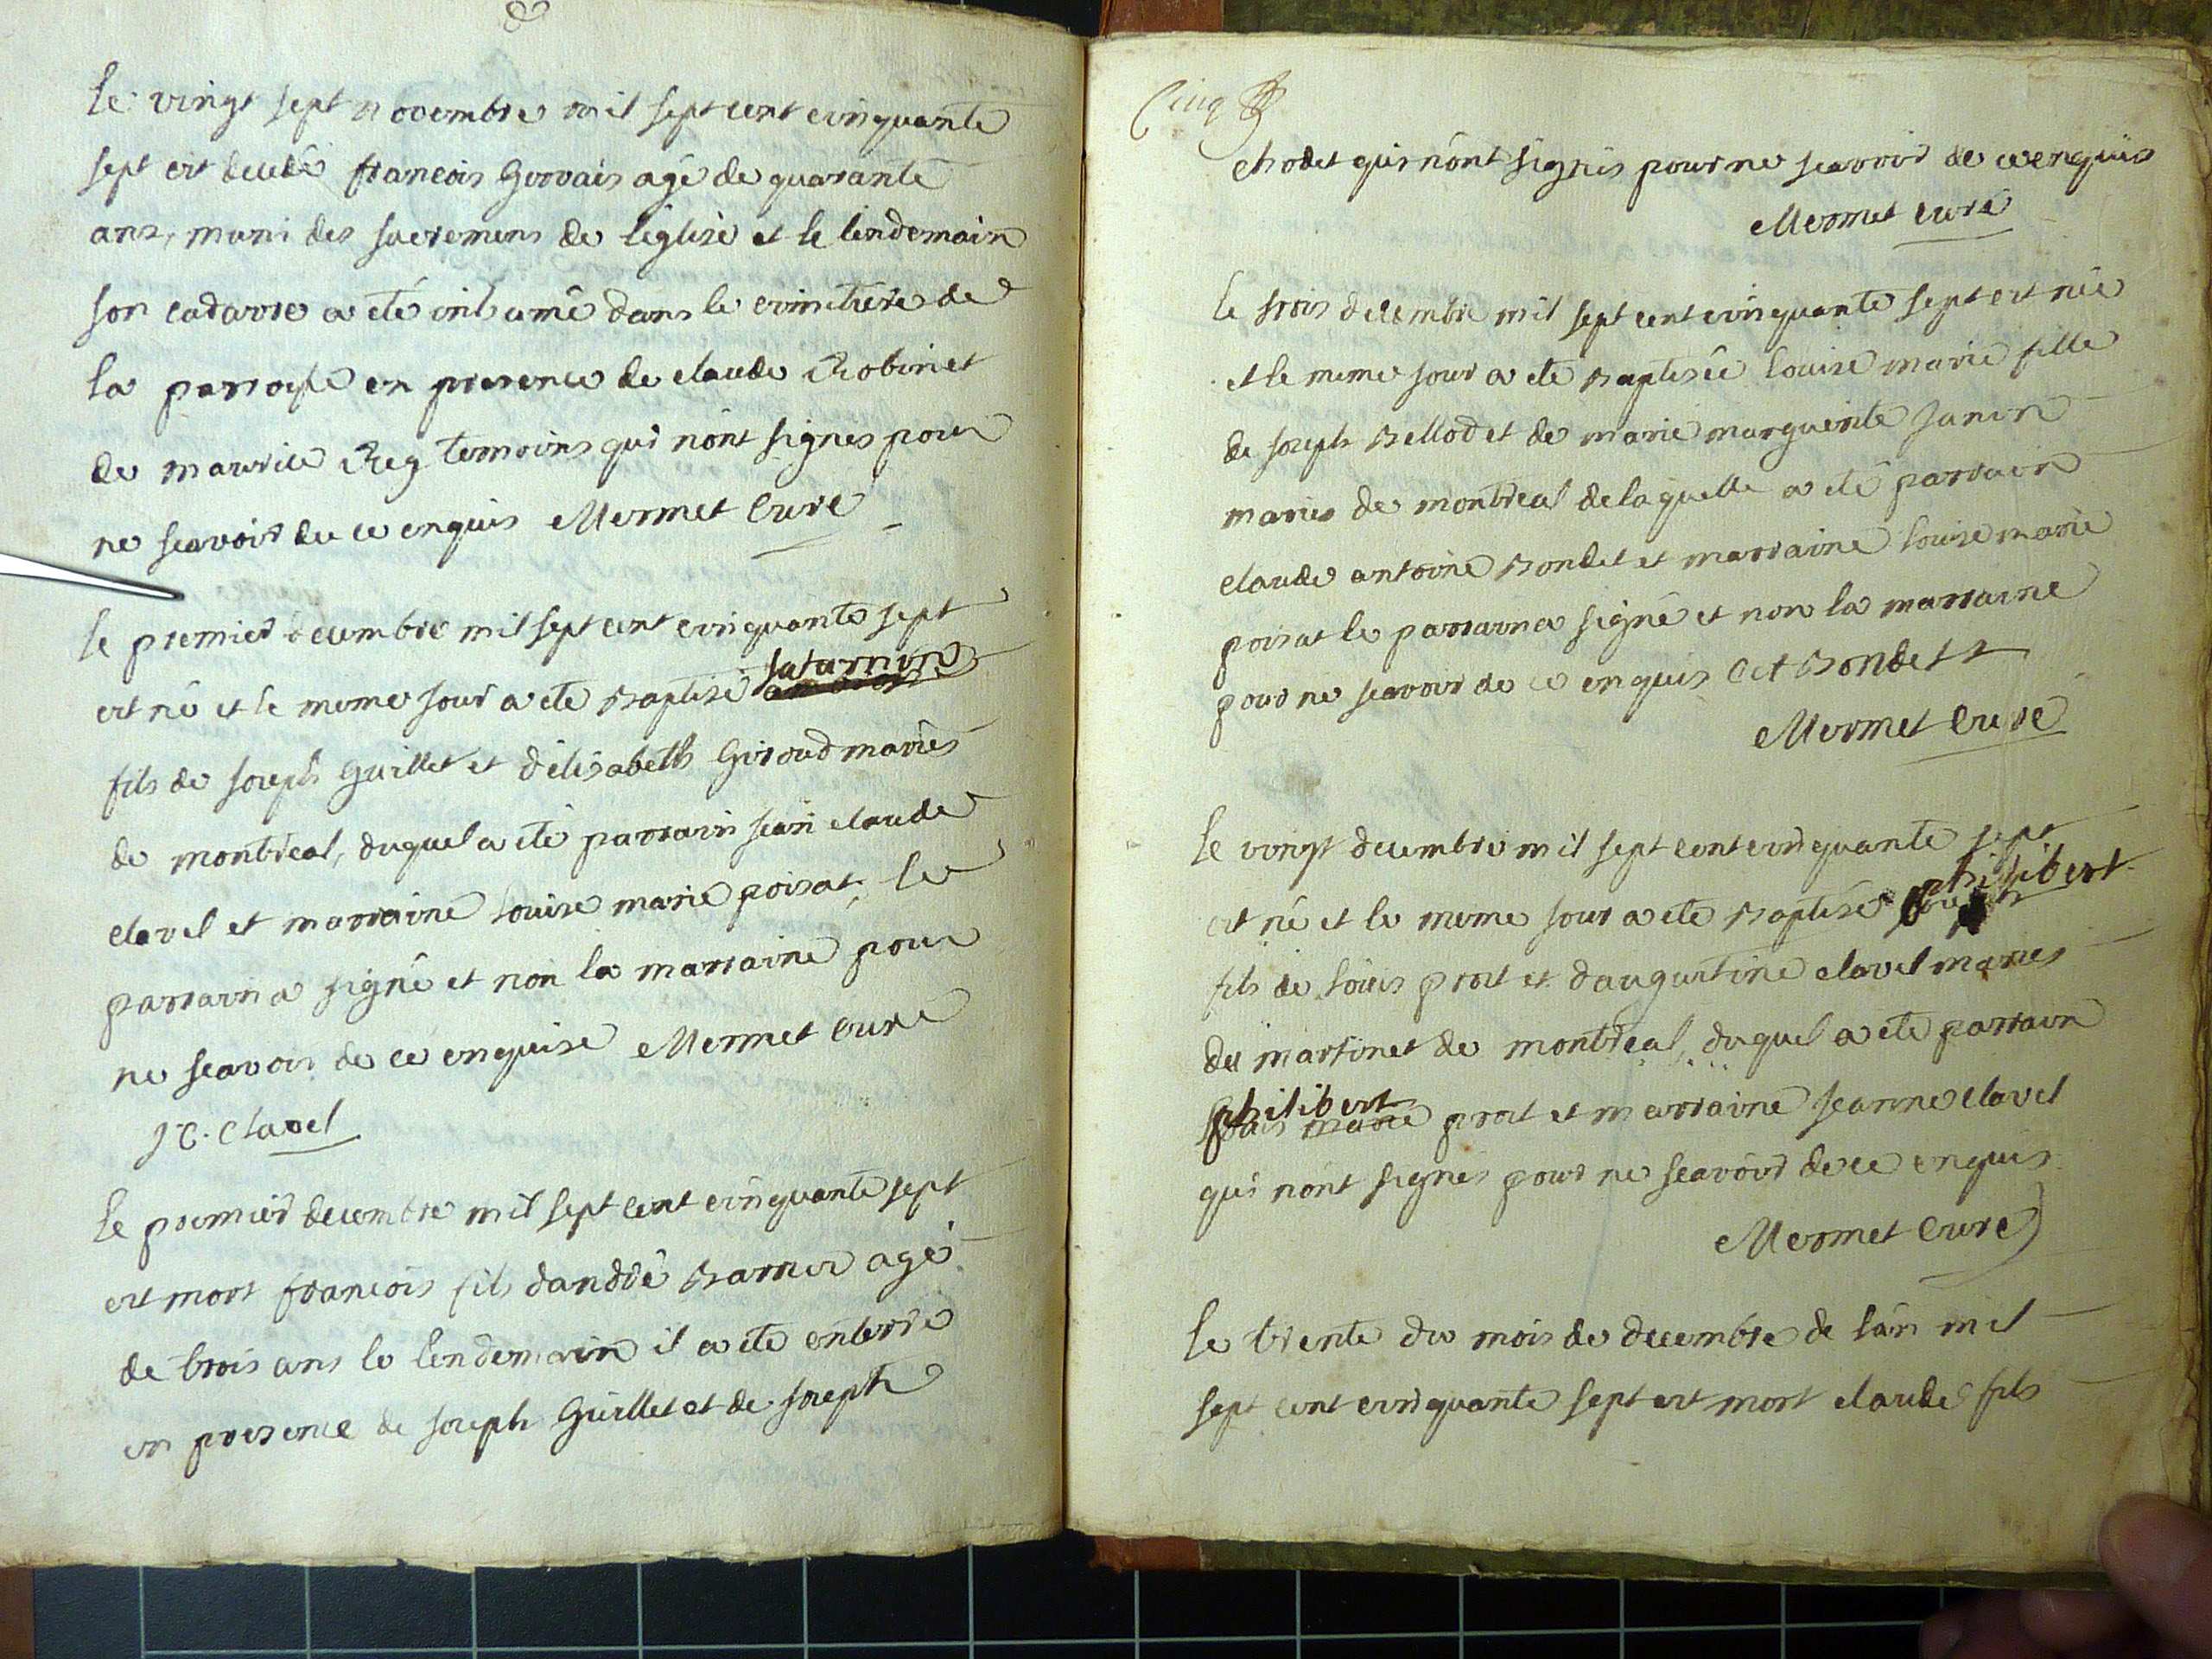 le vingt sept novembre mil sept cent cinquante
sept est decedé francois Gervais agé de quarante
ans, muni des sacremens de l'eglise et le lendemain
son cadavre a eté inhumé dans le cimetiere de
la parroisse en presence de claude Robinet
de maurice Rey temoins qui n'ont signes pour
ne scavoir de ce enquis Mermet Curé
le premier decembre mil sept cent cinquante sept
est né et le meme jour a ete baptisé saturnin
fils de joseph Guillet et d'elisabeth Giroud mariés
de montreal, duquel a eté parrain jean claude
clavel et marraine louise marie poisat, le
parrain a signé et non la marraine pour
ne scavoir de ce enquise Mermet curé
J C. Clavel
le premier decembre mil sept cent cinquante sept
est mort francois fils d'andré agé
de trois ans le lendemain il a ete enterré
en presence de joseph Guillet et de joseph
Cinq
chodet qui n'ont signés pour ne scavoir de ce enquis
Mermet curé
le trois decembre mil sept cent cinquante sept est née
et le meme jour a ete baptisée louise marie fille
de joseph bellod et de marie marguerite janin
mariés de montreal de laquelle a eté parrain
claude antoine bondet et marraine louise marie
poisat le parrain a signé et non la marraine
pour ne scavoir de ce enquis C A bondet
Mermet Curé
le vingt decembre mil sept cent cinquante sept
est né et le meme jour a ete baptisé philibert
fils de louis prost et d'augustine clavel mariés
du martinet de montreal, duquel a ete parrain
philibert prost et marraine jeanne clavel
qui n'ont signés pour ne scavoir de ce enquis
Mermet Curé
le trente du mois de decembre de l'an mil
sept cent cinquante sept est mort claude fils